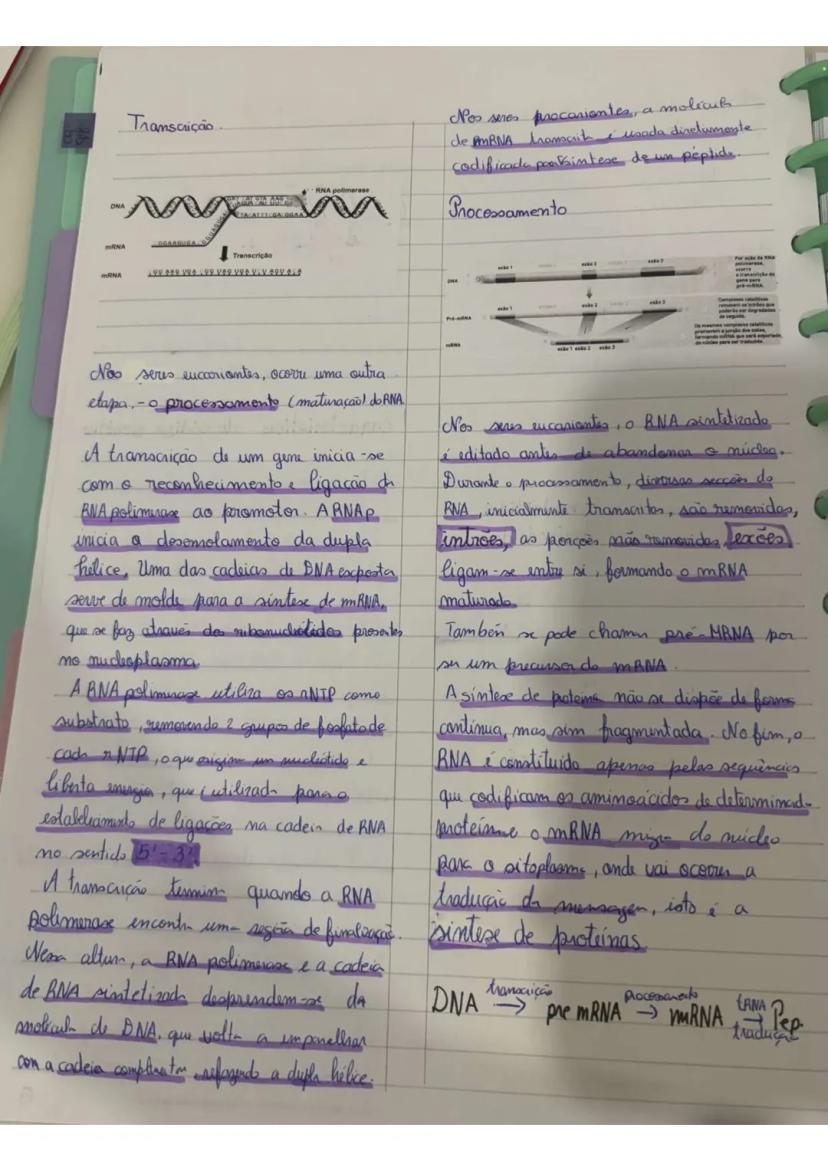 Transcrição.
RNA polimerase
DNA
mRNA
Transcrição
mRNA
Nos seres eucariontes, ocorre uma outra
etapa, - o processamento (maturação) do RNA
A transcrição de um gene inicia-se
com o reconhecimento e ligação da
RNA polimerase ao promotor. A RNAp
inicia o desenrolamento da dupla
hélice. Uma das cadeias de DNA exposta
serve de molde para a síntese de mRNA,
que se faz através dos ribonucleótidos presentes
no nucleoplasma
A RNA polimerase utiliza os rNTP como
substrato, removendo 2 grupos de fosfato de
cada rNTP, o que origina um nucleótido e
liberta energia, que é utilizada para o
estabelecimento de ligações na cadeia de RNA
no sentido 5' - 3'
A transcrição termina quando a RNA
polimerase encontra uma região de finalização.
Nessa altura, a RNA polimerase e a cadeia
de RNA sintetizada desprendem-se da
molécula de DNA, que volta a emparelhar
com a cadeia complementar refazendo a dupla hélice.
Nos seres procariontes, a molécula
de mRNA transcrita é usada diretamente
codificada para síntese de um péptido.
Processamento
exão 1 exão 2 exão 3
DNA
Por ação da RNA
polimerase,
ocorre
a transcrição do
gene para
pré-mRNA.
exão 1 exão 2 exão 3
Pré-mRNA
Complexos catalíticos
removem os intrões que
poderão ser degradados
de seguida.
Os mesmos complexos catalíticos
promovem a junção dos exões,
formando mRNA que será exportado
do núcleo para ser traduzido.
mRNA
exão 1 exão 2 exão 3
Nos seres eucariontes, o RNA sintetizado
é editado antes de abandonar o núcleo.
Durante o processamento, diversas secções do
RNA, inicialmente transcritas, são removidas,
intrões, as porções não removidas, exões
ligam-se entre si, formando o mRNA
maturado
Também se pode chamar pré-MRNA por
ser um precursor do mRNA.
A síntese de proteína não se dispõe de forma
contínua, mas sim fragmentada. No fim, o
RNA é constituído apenas pelas sequências
que codificam os aminoácidos de determinada
proteína e o mRNA migra do núcleo
para o citoplasma, onde vai ocorrer a
tradução da mensagem, isto é a
síntese de proteínas
DNA transcrição → pre mRNA processamento → mRNA tRNA → tradução Pep.